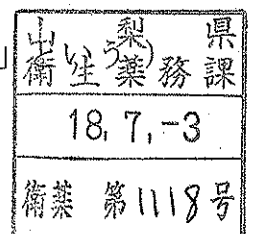 山梨県
衛生薬務課
いう)
」
18.7.-3
衛薬 第1118号